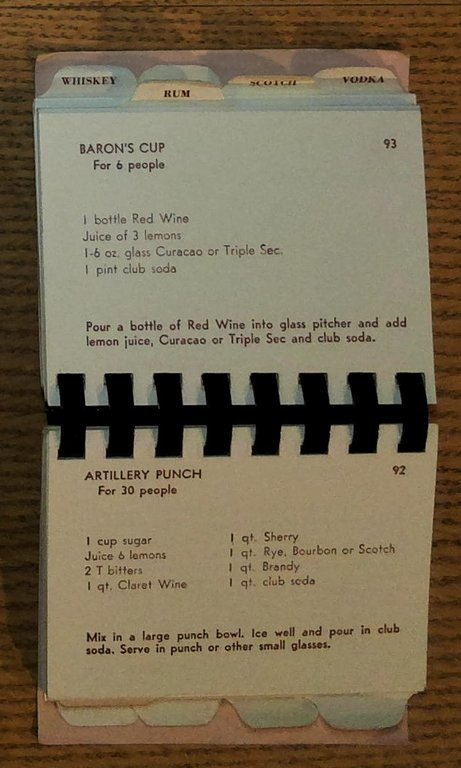 WHISKEY
RUM
SCOTCH
VODKA
BARON'S CUP
93
For 6 people
1 bottle Red Wine
Juice of 3 lemons
1-6 oz. glass Curacao or Triple Sec.
1 pint club soda
Pour a bottle of Red Wine into glass pitcher and add
lemon juice, Curacao or Triple Sec and club soda.
ARTILLERY PUNCH
92
For 30 people
1 cup sugar
Juice 6 lemons
2 T bitters
1 qt. Claret Wine
1 qt. Sherry
1 qt. Rye, Bourbon or Scotch
1 qt. Brandy
1 qt. club soda
Mix in a large punch bowl. Ice well and pour in club
soda. Serve in punch or other small glasses.